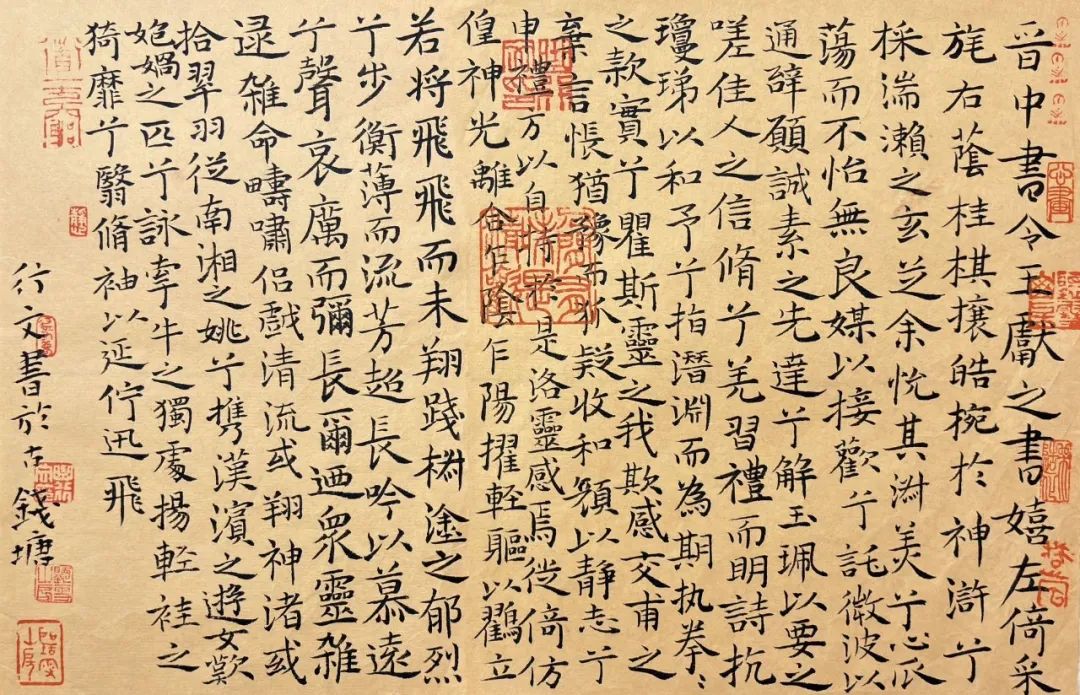 晉中書令王獻之書嬉左倚采
旄右蔭桂棋攘皓捥於神滸兮
採湍瀨之玄芝余悅其淑美兮心
蕩而不怡無良媒以接歡兮託微波以
通辭願誠素之先達兮解玉珮以要之
嗟佳人之信脩兮羌習禮而明詩抗
瓊珶以和予兮指潛淵而為期执拳〻
之款實兮瞿斯靈之我欺感交甫之
棄言悵猶豫而狐疑收和顏以静志兮
申禮方以自持於是洛靈感焉徙倚仿
偟神光離合乍陰乍陽擢軽軀以鶴立
若将飛飛而未翔踐椒塗之郁烈
兮步衡薄而流芳超長吟以慕遠
兮聲哀厲而彌長爾迺眾靈雜
逯雑命疇嘯侣戲清流或翔神渚或
拾翠羽従南湘之姚兮携漢濱之遊女歎
媧之匹兮詠牽牛之獨處揚軽袿之
猗靡兮翳脩袖以延佇迅飛
行文書於古錢塘